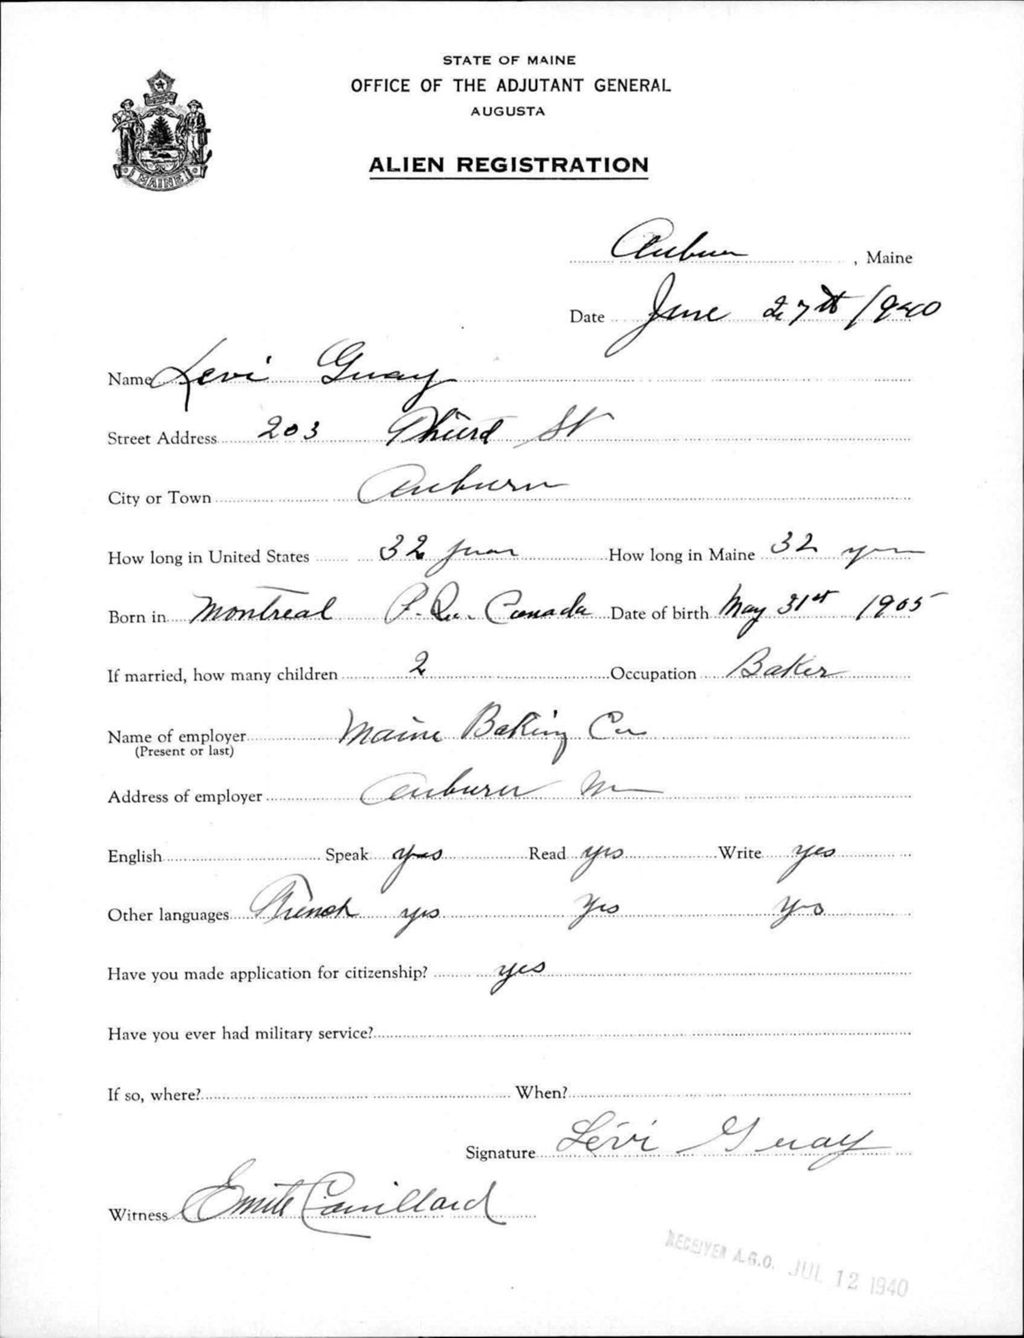 STATE OF MAINE
OFFICE OF THE ADJUTANT GENERAL
AUGUSTA
ALIEN REGISTRATION
MAINE
Auburn, Maine
Date June 27th 1940
Name Levi Guay
Street Address 203 Third St
City or Town Auburn
How long in United States 32 year How long in Maine 32 year
Born in Montreal P. Qu. Canada Date of birth May 31st 1905
If married, how many children 2 Occupation Baker
Name of employer Maine Baking Co
(Present or last)
Address of employer Auburn Me
English Speak yes Read yes Write yes
Other languages French yes yes yes
Have you made application for citizenship? yes
Have you ever had military service?
If so, where? When?
Signature Lévi Guay
Witness
RECEIVED A.G.O. JUL 12 1940